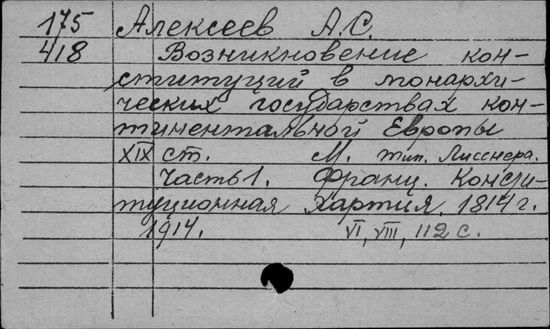 175 Алексеев А.С.
418 Возникновение кон-
ституций в монархи-
ческих государствах кон-
тинентальной Европы
XIX ст. М. тип. Лисснера.
Часть 1. Франц. Консти-
туционная хартия. 1814 г.
1914. VI, VIII, 112 с.